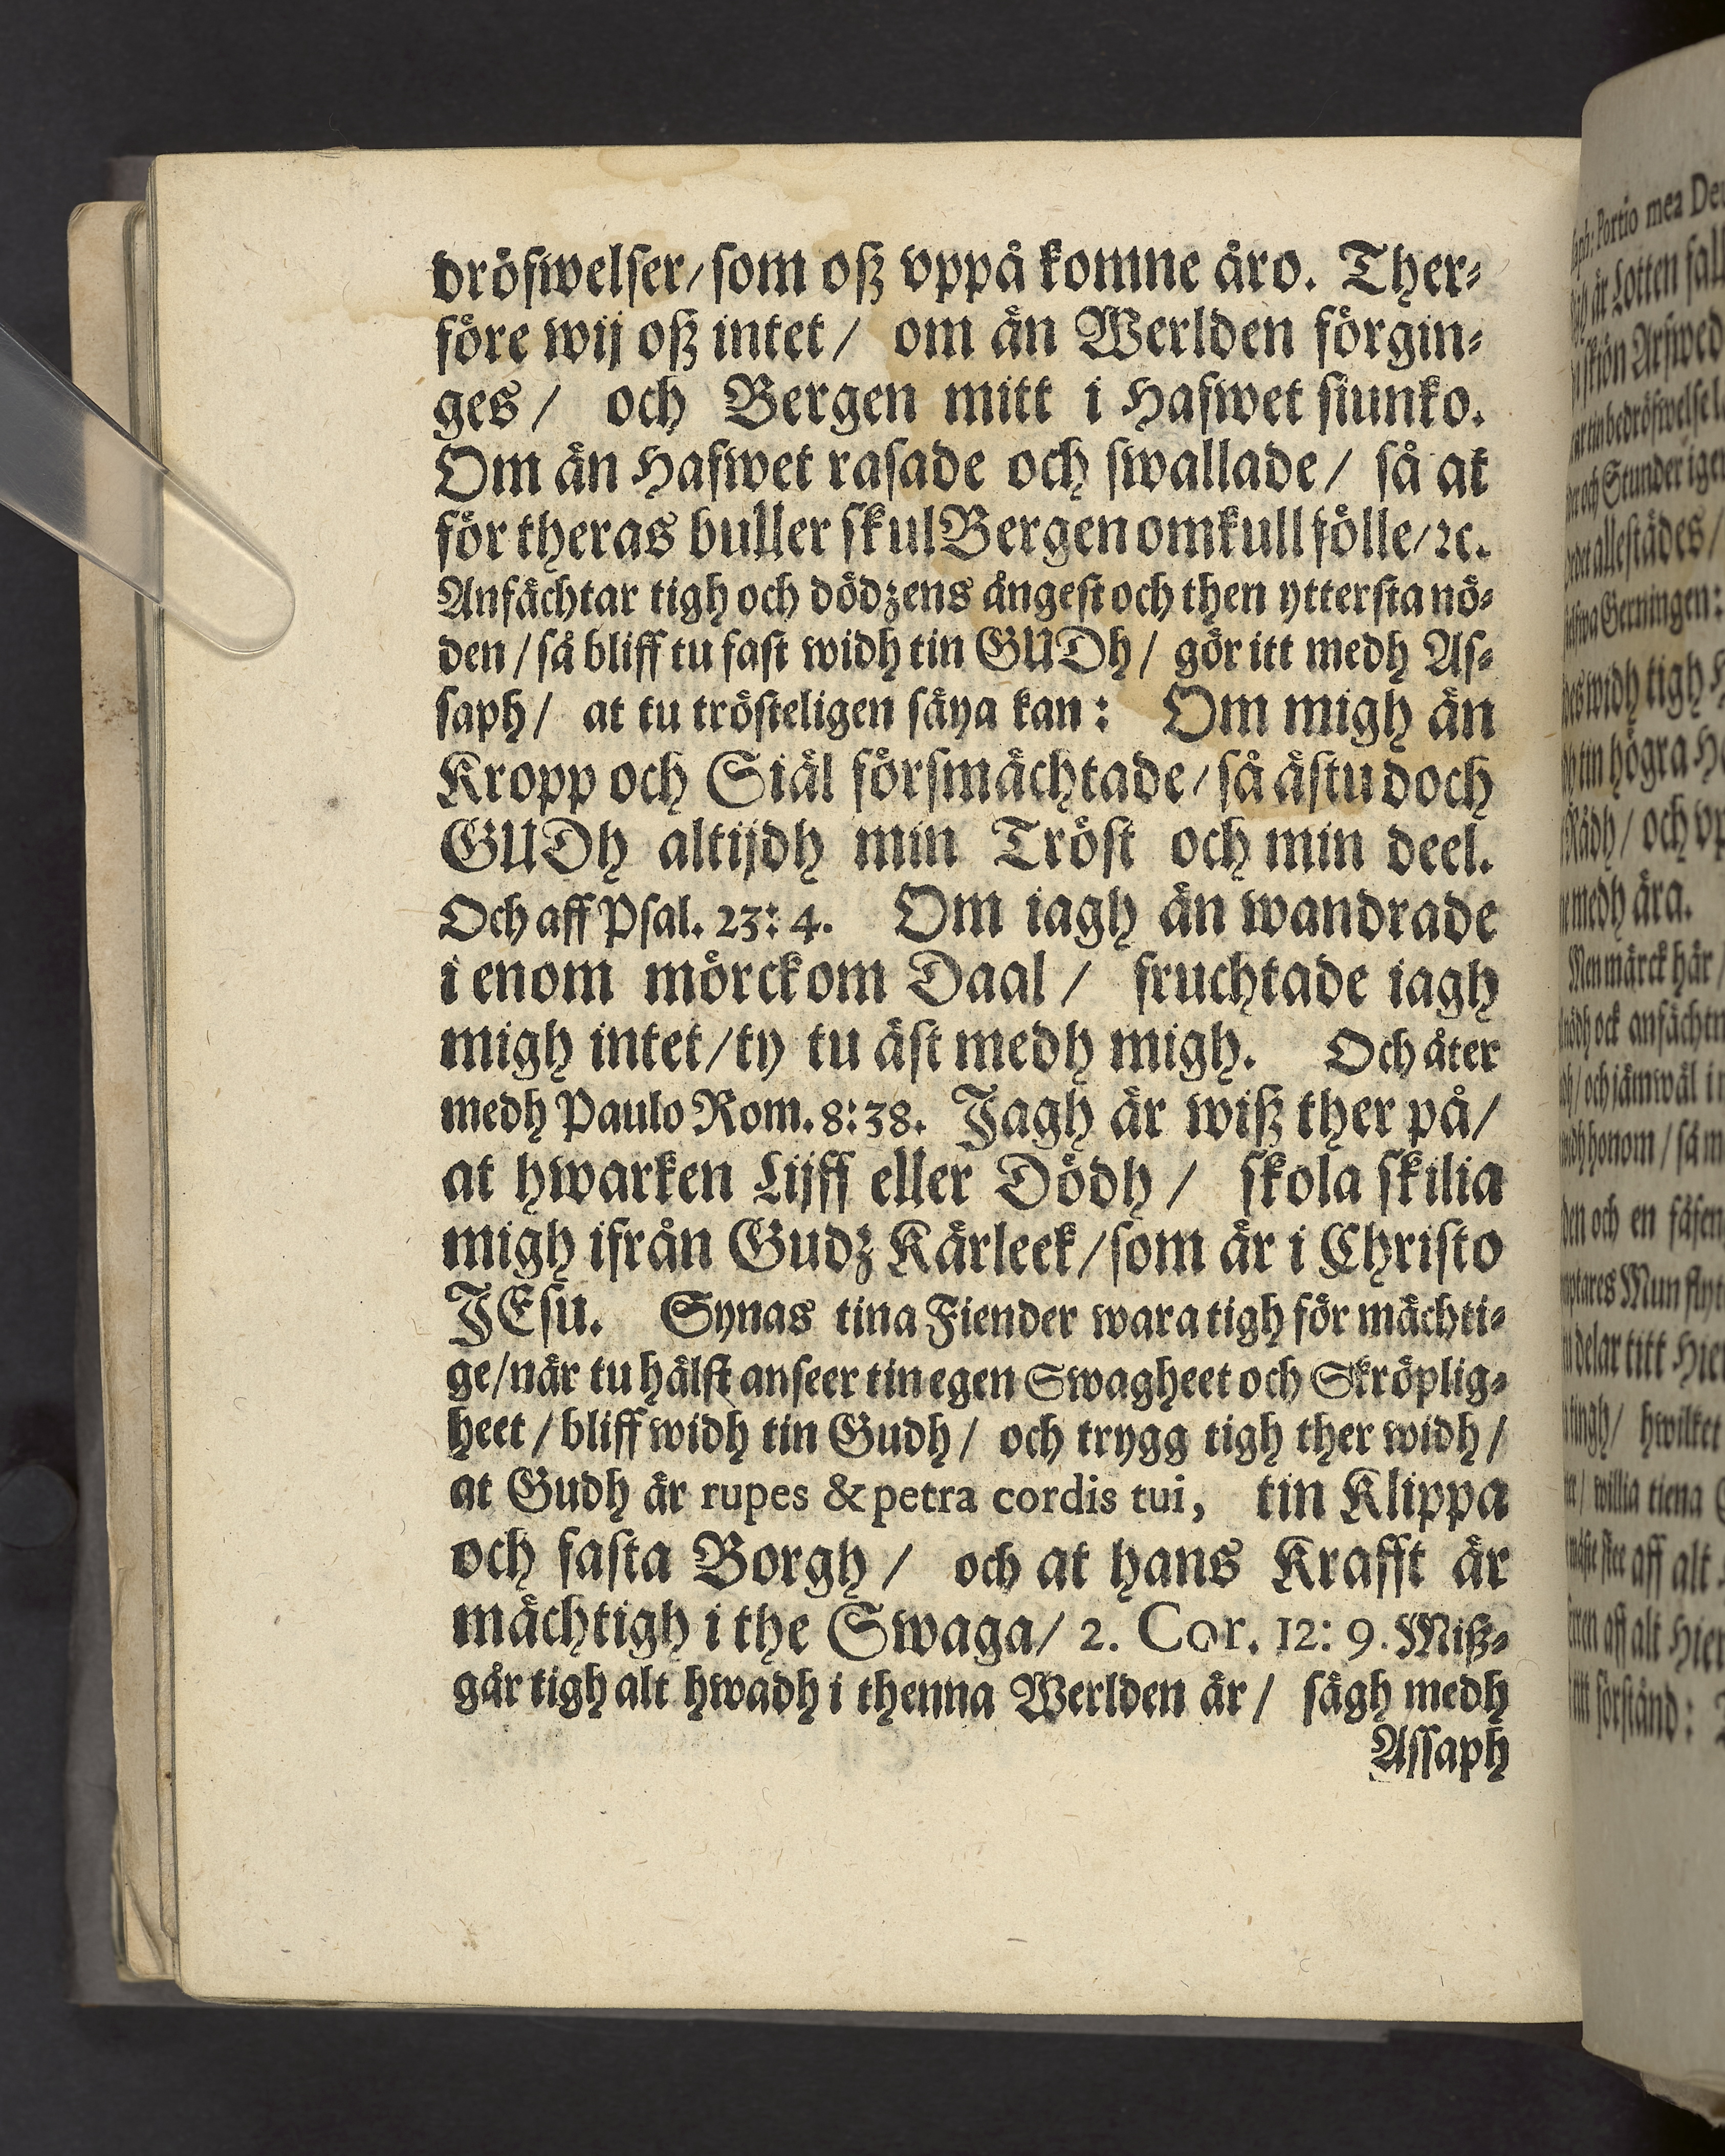 dröfwelser/som oß vppå komne äro. Ther-
före wij oß intet/ om än Werlden förgin-
ges/ och Bergen mitt i Hafwet siunko.
Om än Hafwet rasade och swallade/ så at
för theras buller skul Bergen omkull fölle/ ꝛc.
Anfächtar tigh och dödzens ångest och then yttersta nö-
den/så bliff tu fast widh tin GUDh/ gör itt medh As-
saph/ at tu trösteligen säya kan: Om migh än
Kropp och Siäl försmächtade/så ästu doch
GUDh altijdh min Tröst och min deel.
Och aff Psal. 23: 4. Om iagh än wandrade
i enom mörckom Daal/ fruchtade iagh
migh intet/ty tu äst medh migh. Och åter
medh Paulo Rom. 8: 38. Jagh är wiß ther på/
at hwarken Lijff eller Dödh/ skola skilia
migh ifrån Gudz Kärleek/som är i Christo
JEsu. Synas tina Fiender wara tigh för mächti-
ge/när tu hälst anseer tin egen Swagheet och Skröplig-
heet/bliff widh tin Gudh/ och trygg tigh ther widh/
at Gudh är rupes & petra cordis tui, tin Klippa
och fasta Borgh/ och at hans Krafft är
mächtigh i the Swaga/ 2. Cor. 12: 9. Miß-
går tigh alt hwadh i thenna Werlden är/ sägh medh
Assaph
Portio mea
är Lotten
skiön
och Stunder
allestädes/
Gerningen:
widh tigh
tin högra
Rådh/ och
medh ära.
Men märck här/
ock
och jämwäl
honom/ så
och en
Mun
delar titt
hwilket
willia tiena
aff alt
aff alt
förstånd: